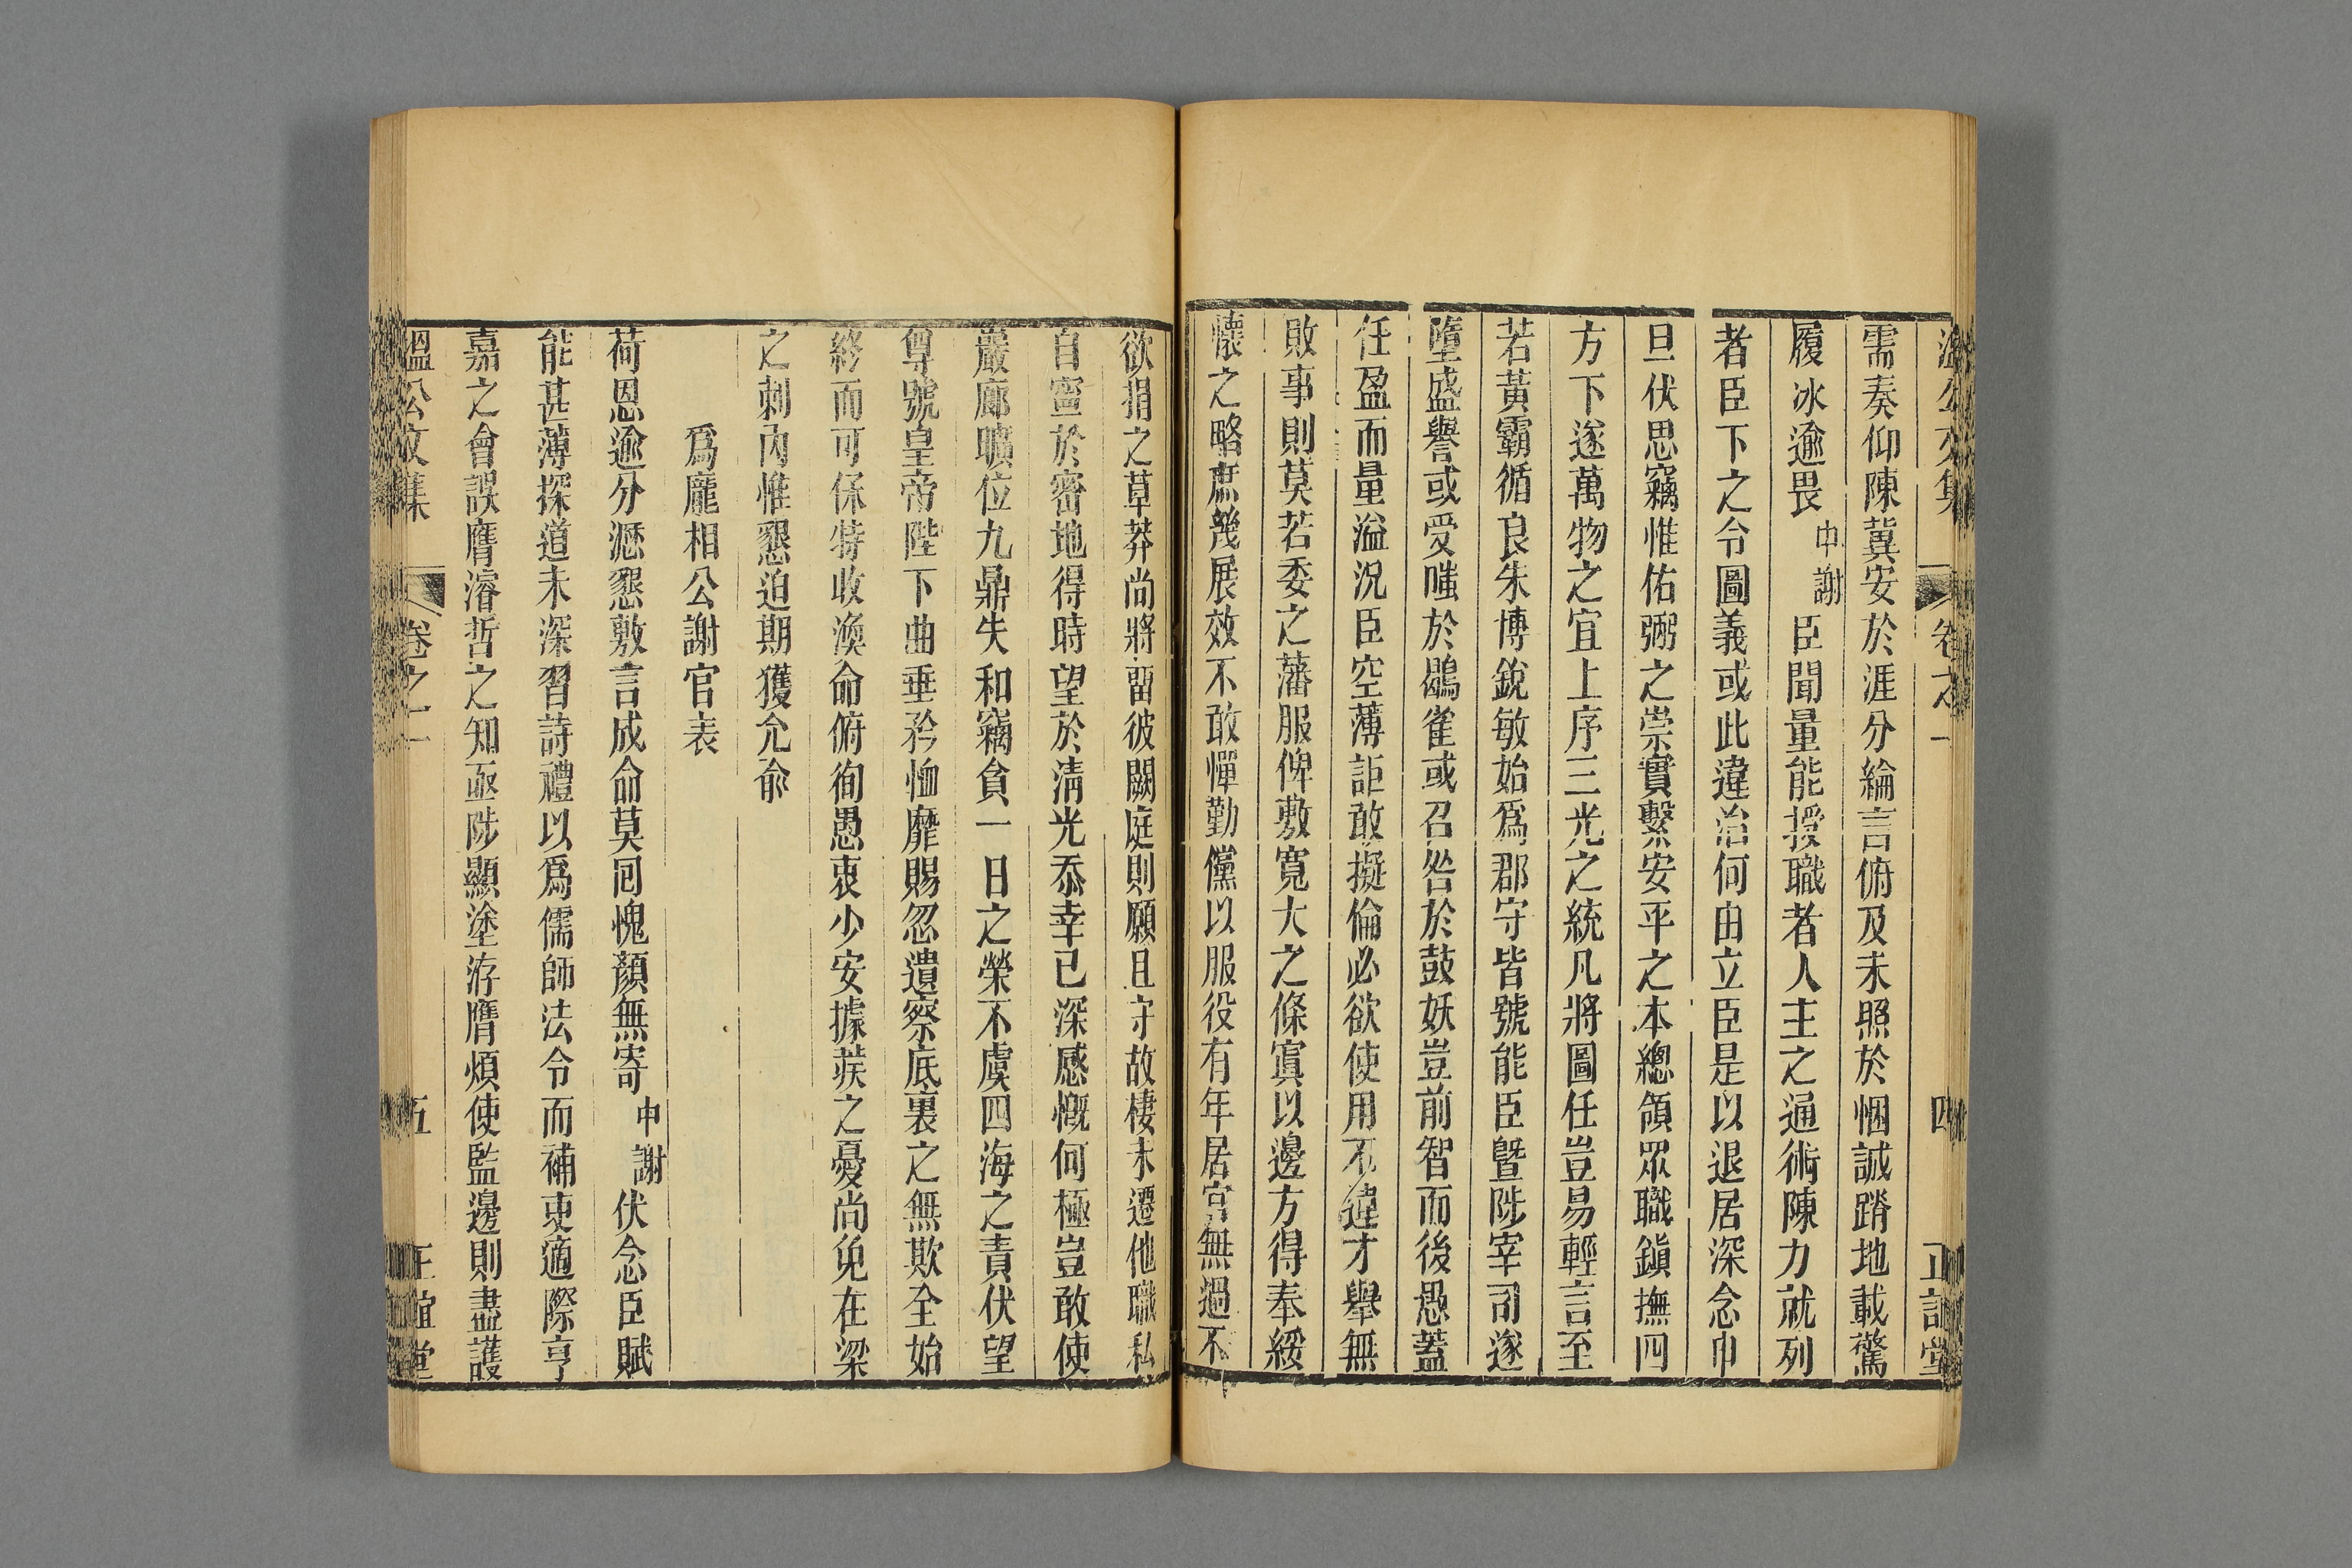 溫公文集 卷之一 四 正誼堂
需奏仰陳冀安於涯分綸言俯及未照於悃誠蹐地載驚
履冰逾畏中謝臣聞量能授職者人主之通術陳力就列
者臣下之令圖義或此違治何由立臣是以退居深念巾
旦伏思竊惟佑弼之崇實繫安平之本總領眾職鎭撫四
方下遂萬物之宜上序三光之統凡將圖任豈易輕言至
若黃霸循良朱博銳敏始爲郡守皆號能臣曁陟宰司遂
墮盛譽或受嗤於鶡雀或召咎於鼓妖豈前智而後愚蓋
任盈而量溢況臣空薄詎敢擬倫必欲使用不違才舉無
敗事則莫若委之藩服俾敷寬大之條寘以邊方得奉綏
懷之略庶幾展效不敢憚勤儻以服役有年居宮無過不
欲捐之草莽尚將留彼闕庭則願且守故棲未遷他職私
自寧於密地得時望於淸光忝幸已深感慨何極豈敢使
嚴廊曠位九鼎失和竊貪一日之榮不虞四海之責伏望
尊號皇帝陛下曲垂矜恤靡賜忽遺察底裏之無欺全始
終而可保特收渙命俯徇愚衷少安據蒺之憂尚免在梁
之刺內惟懇迫期獲允兪
爲龐相公謝官表
荷恩逾分瀝懇敷言成命莫囘愧顏無寄中謝伏念臣賦
能甚薄探道未深習詩禮以爲儒師法令而補吏適際亨
嘉之會誤膺濬哲之知亟陟顯塗洊膺煩使監邊則盡護
溫公文集 卷之一 五 正誼堂